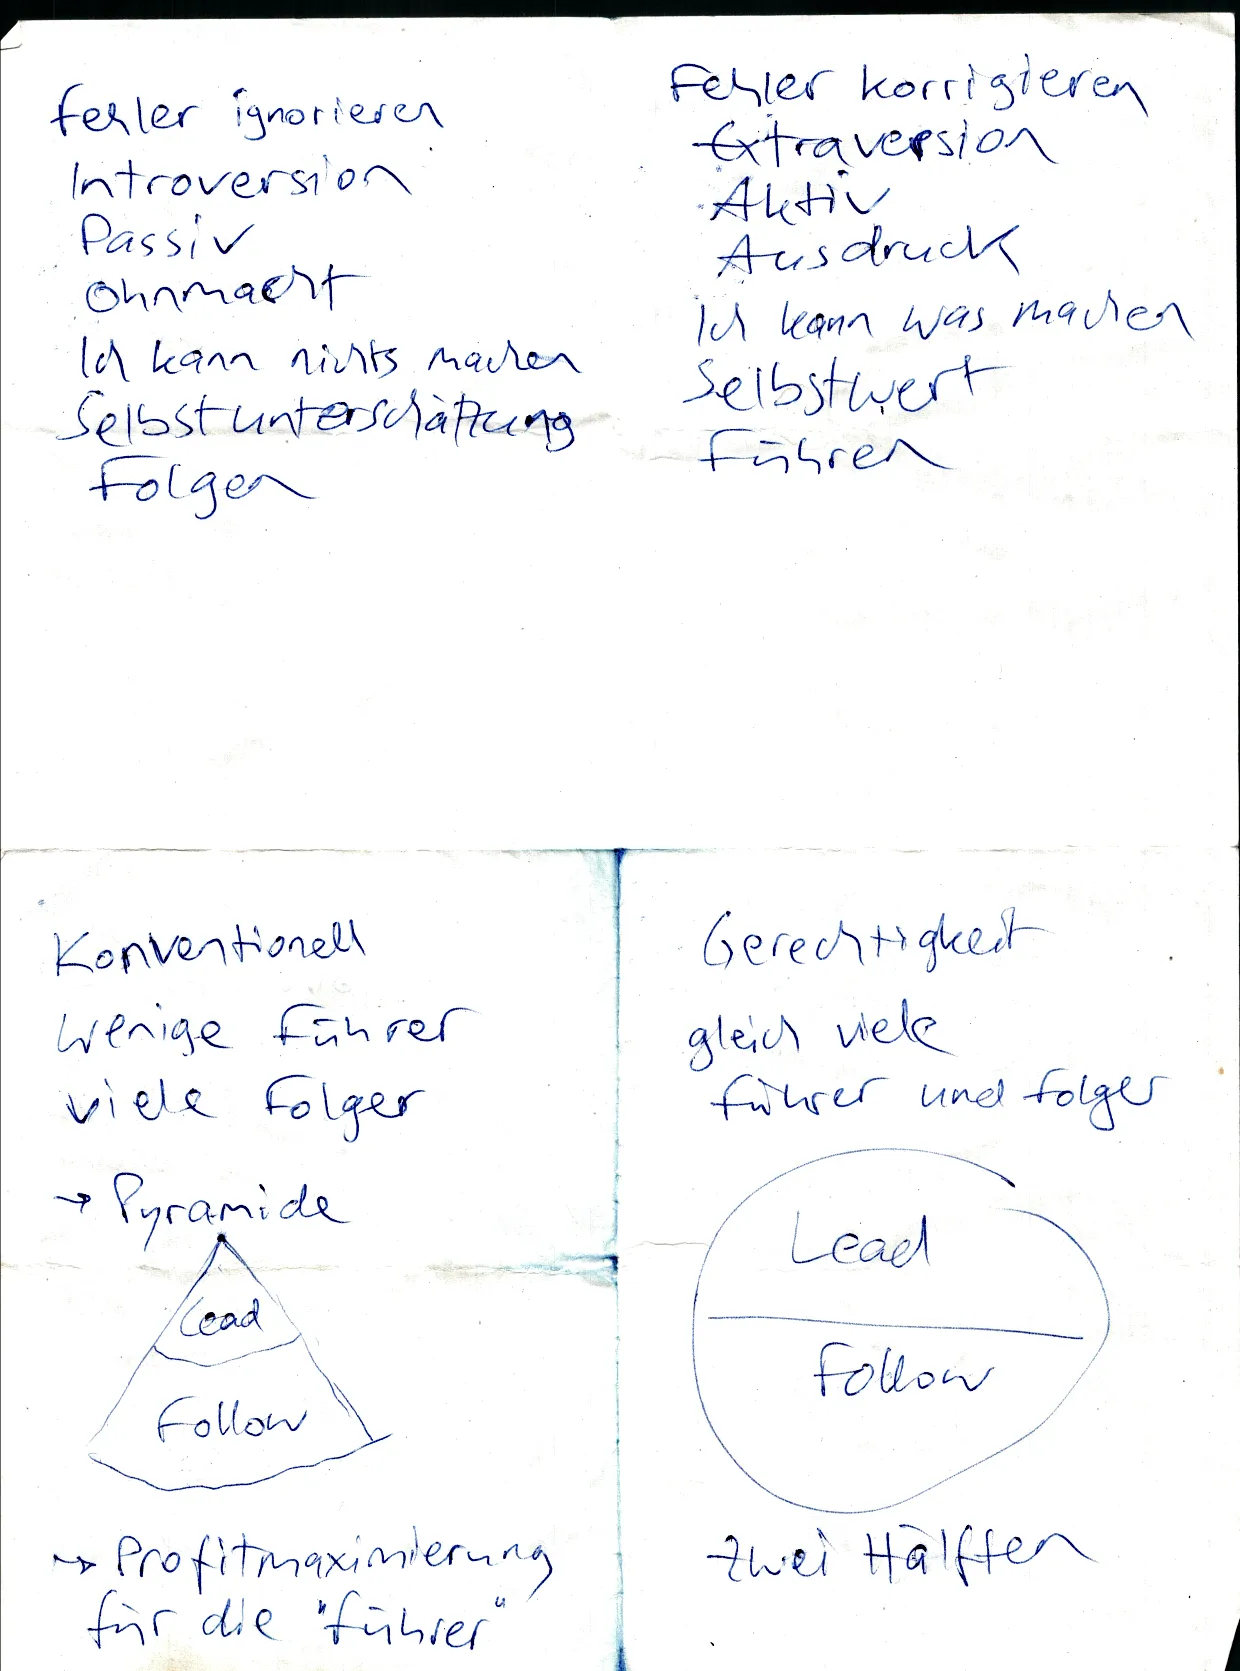 Fehler ignorieren
Introversion
Passiv
Ohnmacht
Ich kann nichts machen
Selbstunterschätzung
Folgen
Fehler korrigieren
Extraversion
Aktiv
Ausdruck
Ich kann was machen
Selbstwert
Führen
Konventionell
wenige Führer
viele Folger
→ Pyramide
Lead
Follow
→ Profitmaximierung
für die "Führer"
Gerechtigkeit
gleich viele
Führer und Folger
Lead
Follow
Zwei Hälften